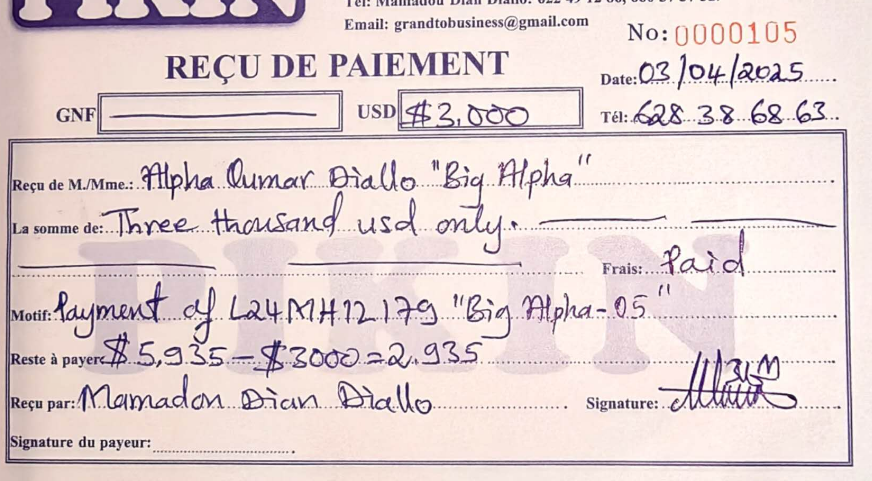 PIKIN
Email: grandtobusiness@gmail.com
No: 0000105
REÇU DE PAIEMENT
Date: 03/04/2025
GNF
USD $3,000
Tél: 628 38 68 63
Reçu de M./Mme.: Alpha Oumar Diallo "Big Alpha"
La somme de: Three thousand usd only.
Frais: Paid
PIKIN
Motif: Payment of L24MH12179 "Big Alpha-05"
Reste à payer: $5,935 - $3000 = 2.935
Reçu par: Mamadou Dian Diallo
Signature:
Signature du payeur: